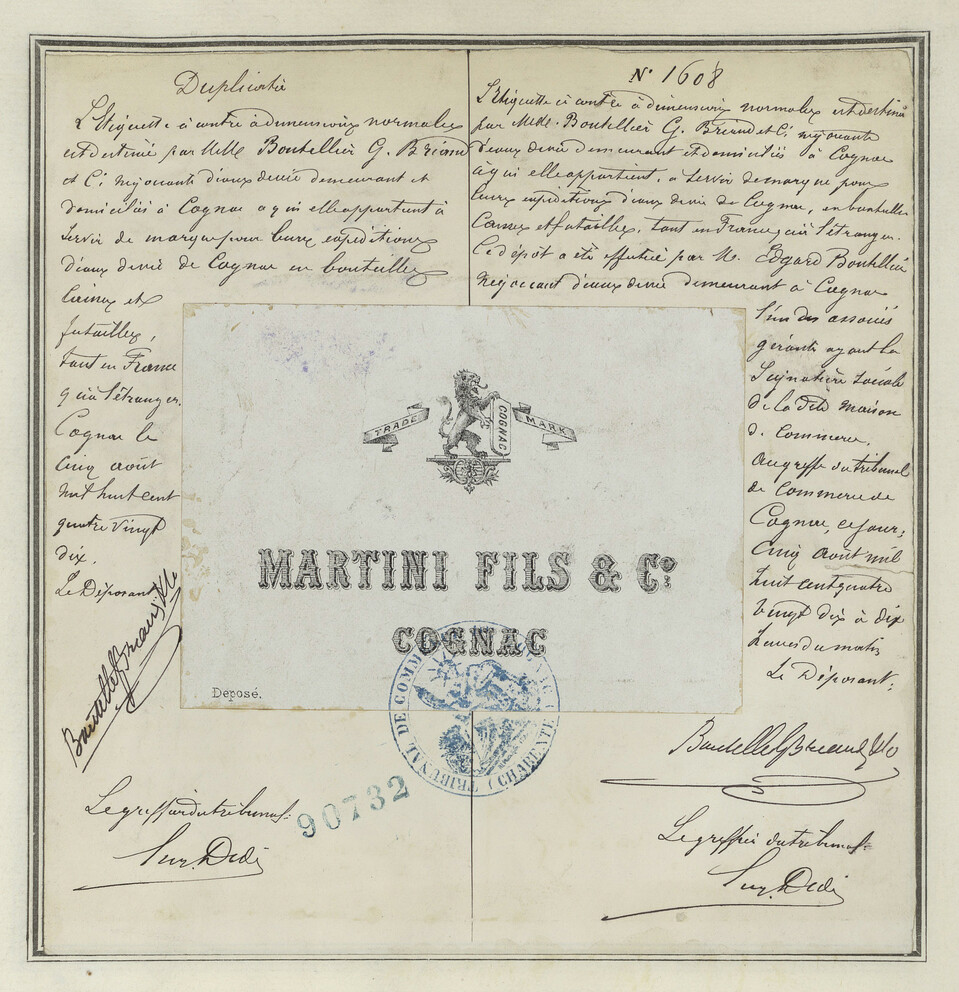 Duplicata
L'Etiquette ci contre à dimensions normales
est destinée par MMrs Boutellier G. Briand
et Cie négociants d'eaux de vie demeurant et
domiciliés à Cognac a qui elle appartient à
servir de marque pour leurs expéditions
d'eaux de vie de Cognac en bouteilles
Caisses et
futailles,
tant en France
qu'à l'étranger.
Cognac le
Cinq août
mil huit cent
quatre Vingt
dix.
Le Déposant
Boutellier G Briand & Co
Le greffier du tribunal:
N° 1608
L'Etiquette ci contre à dimensions normales est destinée
par MMrs. Boutellier G. Briand et Cie négociants
d'eaux de vie demeurant et domiciliés à Cognac
à qui elle appartient, à servir de marque pour
leurs expéditions d'eaux de vie de Cognac, en bouteilles
Caisses et futailles, tant en France qu'à l'étranger.
Ce dépôt a été effectué par M. Edgard Boutellier
négociant d'eaux de vie demeurant à Cognac
l'un des associés
gérants ayant la
Signature sociale
de la dite maison
de Commerce,
au greffe du tribunal
de Commerce de
Cognac, ce jour,
Cinq août mil
huit cent quatre
Vingt dix à dix
heures du matin
Le Déposant:
Boutellier G Briand & Co
Le greffier du tribunal:
TRADE MARK
COGNAC
MARTINI FILS & Co.
COGNAC
Déposé.
TRIBUNAL DE COMMERCE
(CHARENTE)
90732